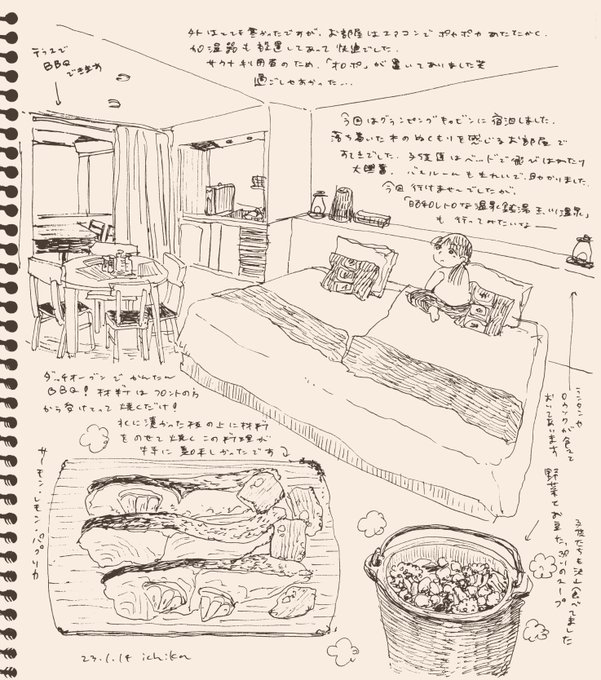 外はとても寒かったですが、お部屋はエアコンでポカポカあたたかく、
加湿器も設置してあって快適でした。
サウナ利用者のため、「オロポ」が置いてありました笑
過ごしやすかった…
テラスで
BBQ
できます
今回はグランピングキャビンに宿泊しました。
落ち着いた木のぬくもりを感じるお部屋で
すてきでした。子供達はベッドで飛びはねたり
大興奮。バスルームもきれいで助かりました。
今回行けませんでしたが、
「昭和レトロな温泉銭湯 玉川温泉」
も行ってみたいなー
ダッチオーブンでかんたん
BBQ! 材料はフロントの方
から受けとって焼くだけ!
水に浸かった板の上に材料
をのせて焼くこの料理が
特に美味しかったです
サーモン・レモン・パプリカ
ランタンや
おいてあります
野菜とお豆たっぷりのスープ
子供たちも沢山食べてました
23.1.14 ichika